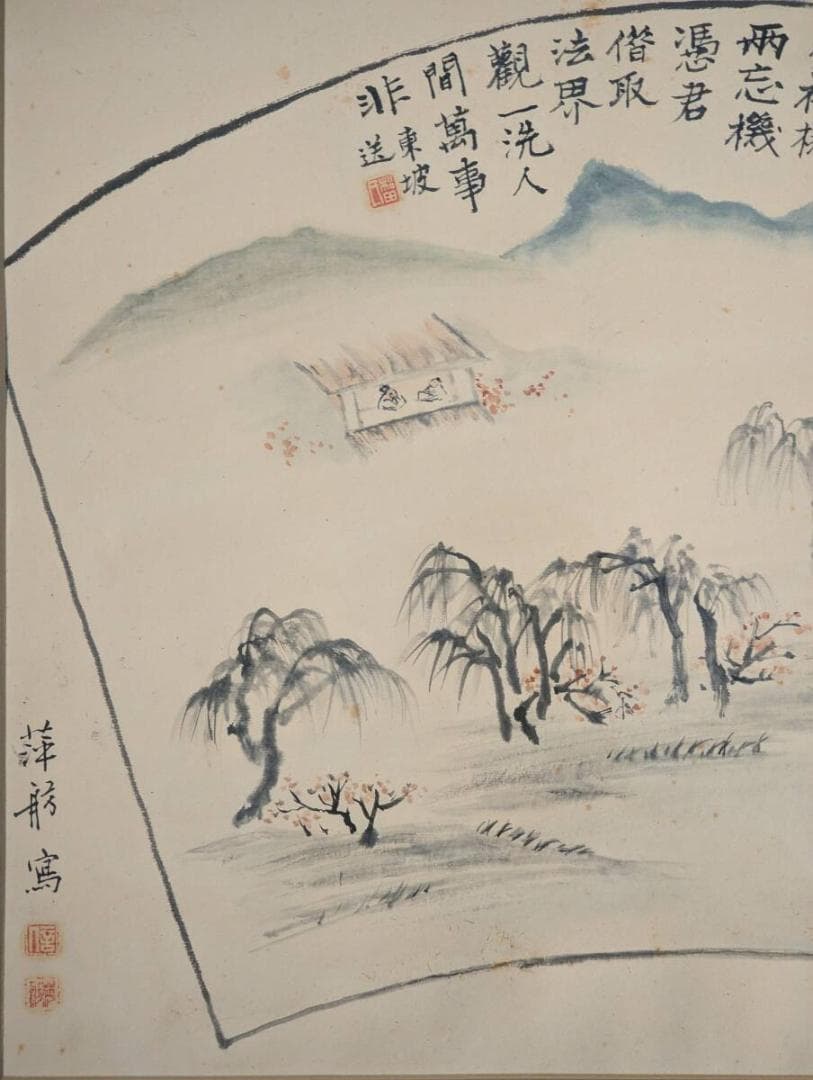 兩忘機
憑君
借取
法界
觀一洗人
間萬事
非
東坡
送
萍舫寫